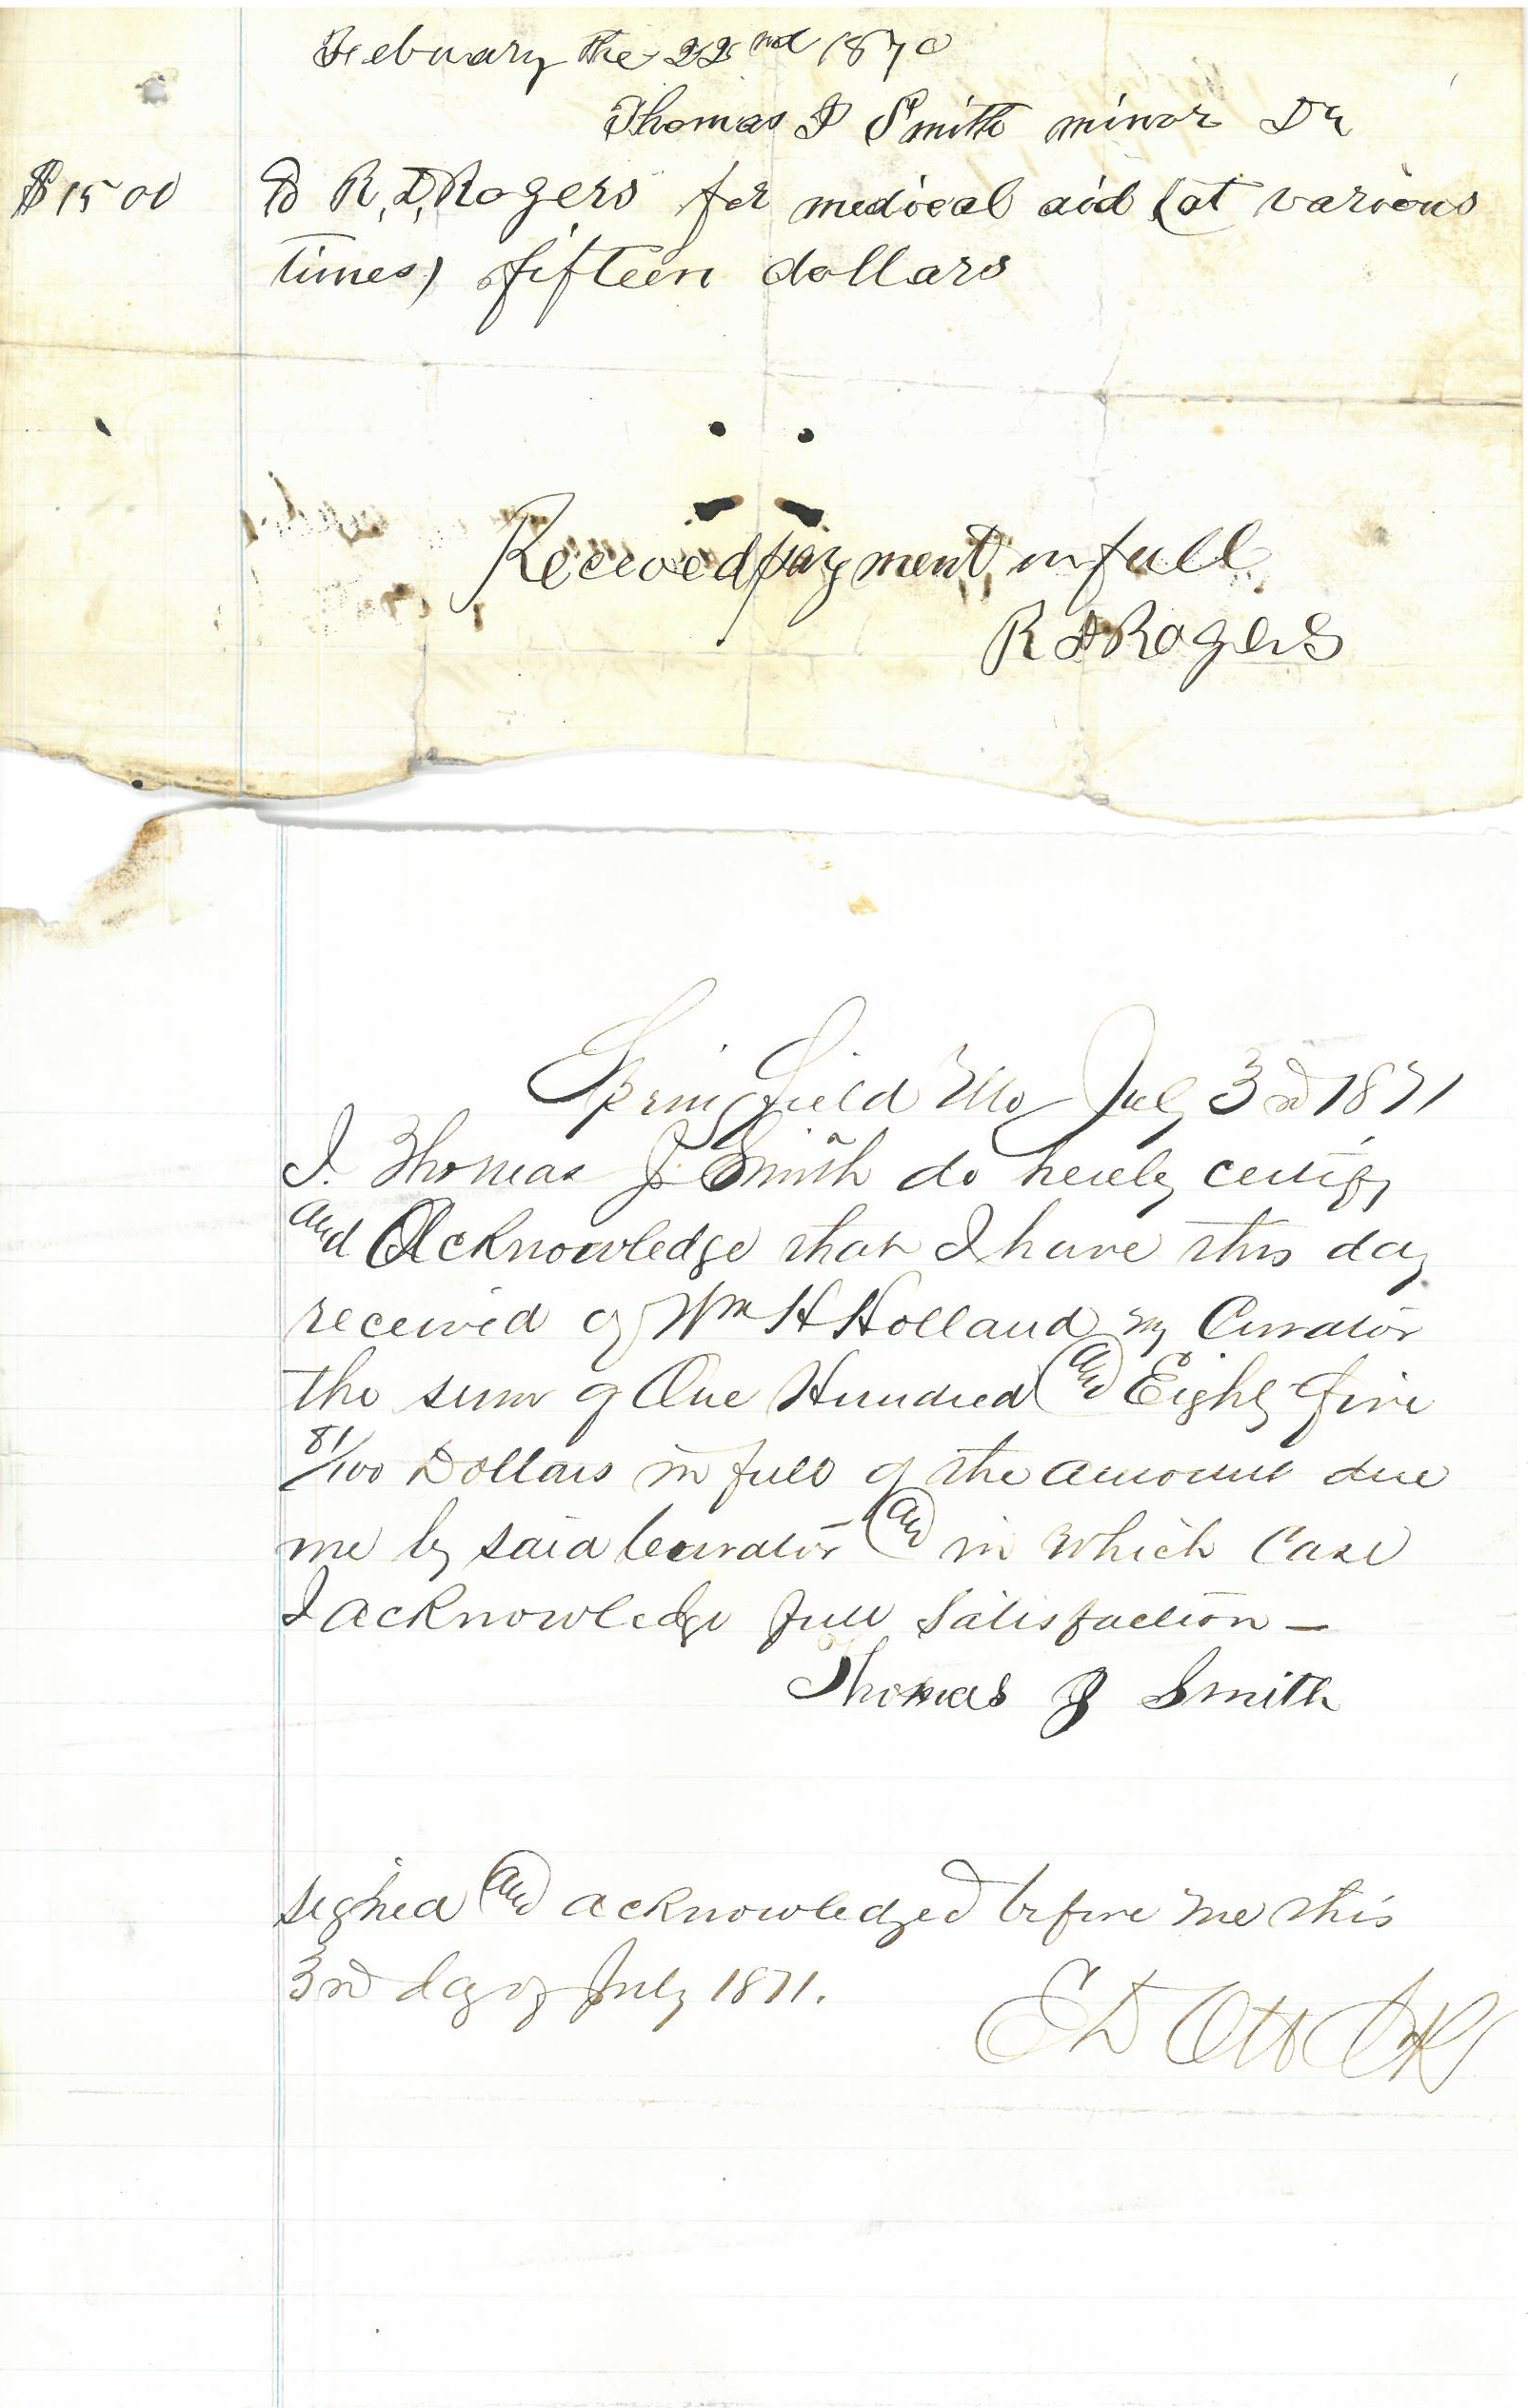 Febuary the 22nd 1870
Thomas J Smith minor Dr
$15 00 To R, D, Rogers for medical aid (at various
times) fifteen dollars
Received payment in full
R D Rogers
Springfield Mo July 3rd 1871
I. Thomas J. Smith do hereby certify
and Acknowledge that I have this day
received of Wm H Holland my Curator
the sum of One Hundred and Eighty five
81/100 Dollars in full of the amount due
me by said Curator and in which Case
I acknowledge full Satisfaction —
Thomas J Smith
signed and acknowledged before me this
3rd day of July 1871.
E D Ott